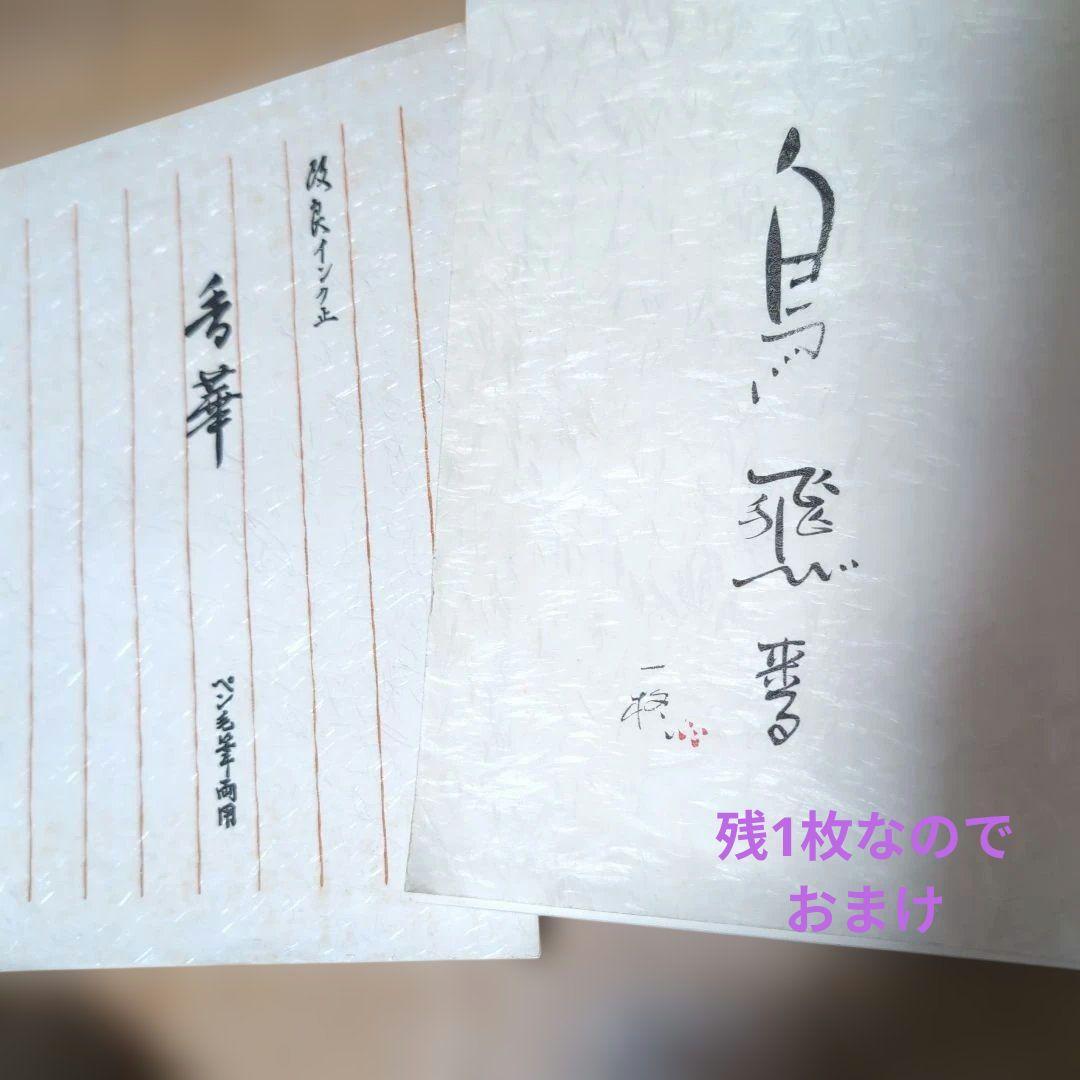 改良インク止
香華
ペン毛筆両用
鳥飛来る
残1枚なので
おまけ